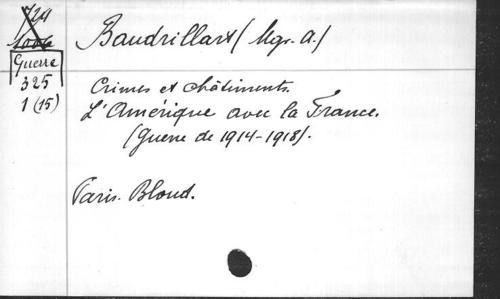 Baudrillart (Mgr. A.)
Guerre
325
1 (15)
Crimes et châtiments.
L'Amérique avec la France.
(Guerre de 1914-1918).
Paris. Bloud.